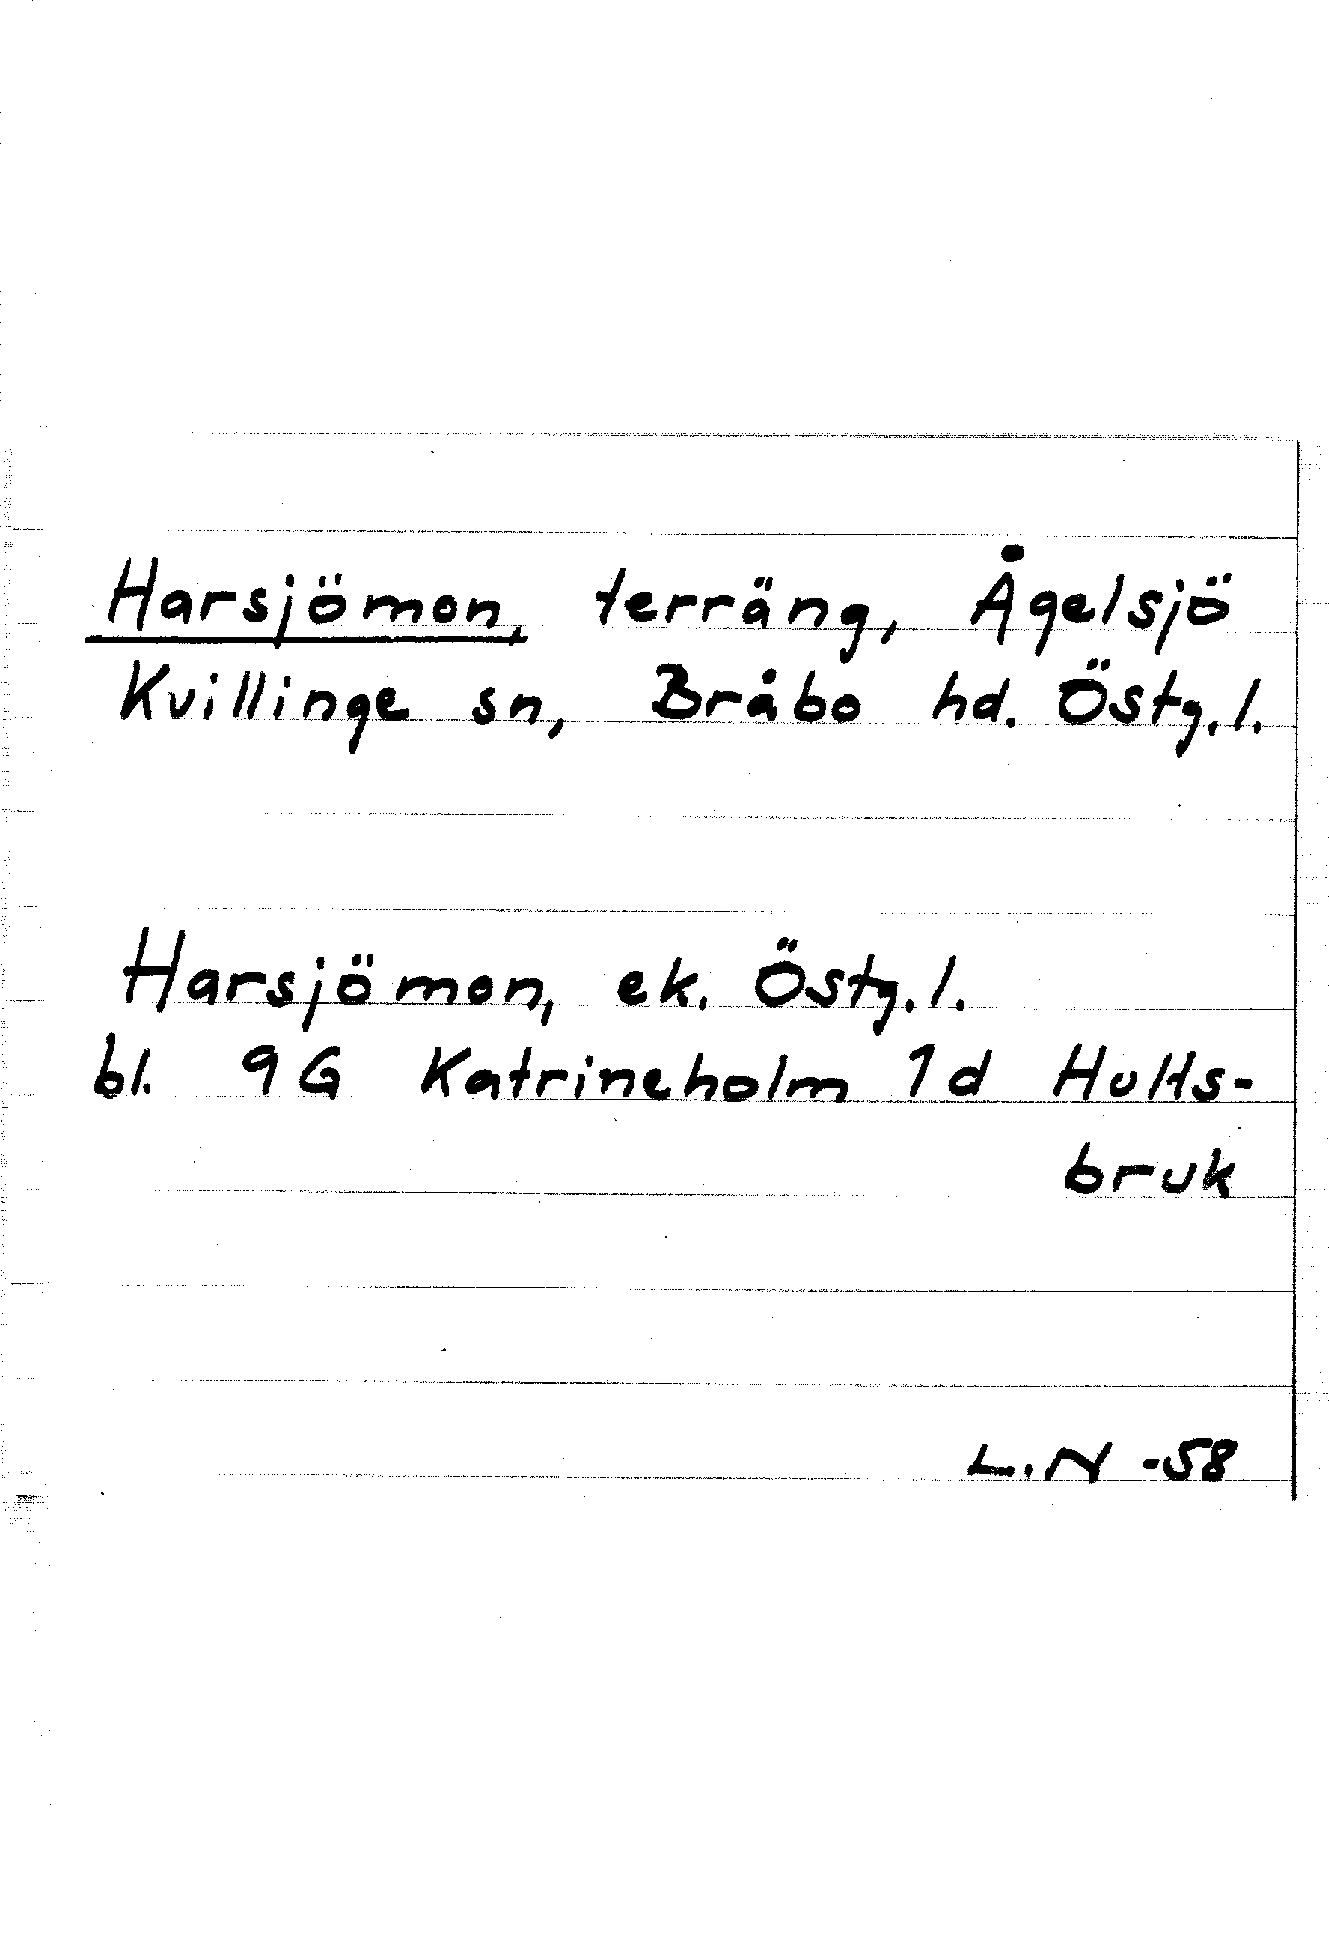 Harsjömon, terräng, Ågelsjö
Kvillinge sn, Bråbo hd. Östg.l.
Harsjömon, ek. Östg.l.
bl. 9G Katrineholm 1d Hults-
bruk
L.N -58